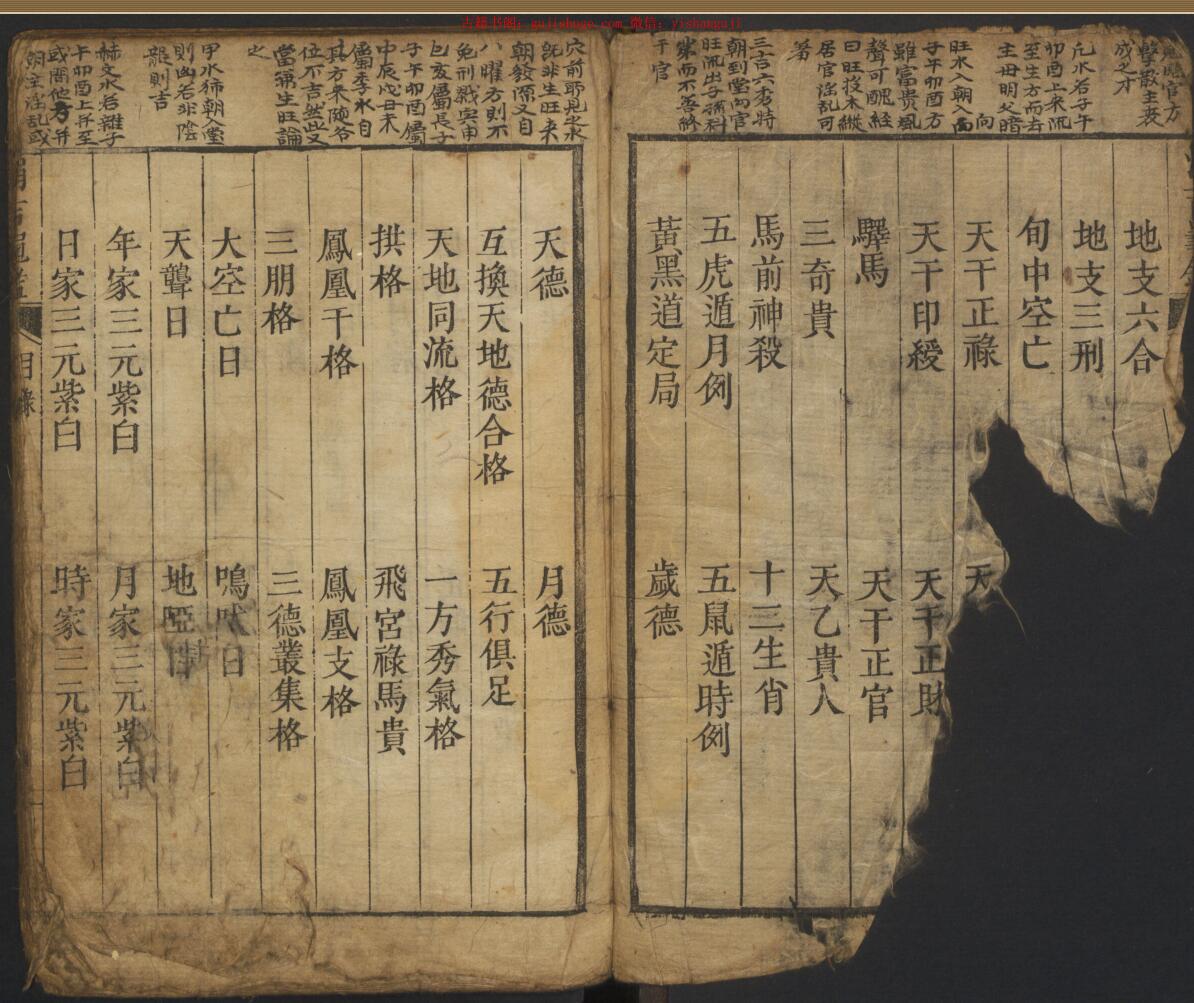 古籍书阁：gujishuge.com 微信：yishanguji
成之才
凡水若子午
卯酉上來流
至生方而去
主母明父暗
向
旺水入朝入
子午卯酉方
雖富貴風
聲可醜經
曰旺投水縱
居官淫乱可
朝到堂向官
旺流出子孫科
第而不善終
于官
地支六合
地支三刑
旬中空亡
天干正祿
天
天干印綬
天干正財
驛馬
天干正官
三奇貴
天乙貴人
馬前神殺
十二生肖
五虎遁月例
五鼠遁時例
黃黑道定局
歲德
穴前耶見之水
既非生旺來
朝發源又自
八曜方則不
免刑戮與申
巳亥屬長子
子午卯酉屬
中辰戌丑未
屬季水自
其方來頭各
位不吉然此又
當第生旺論
之
甲水㹃朝入堂
則凶若非陰
龍則吉
赫文水若離子
午卯酉上并至
或開他方并
朝主淫乱或
天德
月德
互換天地德合格
五行俱足
天地同流格
一方秀氣格
拱格
飛宮祿馬貴
鳳凰干格
鳳凰支格
三朋格
三德叢集格
大空亡日
鳴吠日
天聾日
地啞日
年家三元紫白
月家三元紫白
日家三元紫白
時家三元紫白
目錄